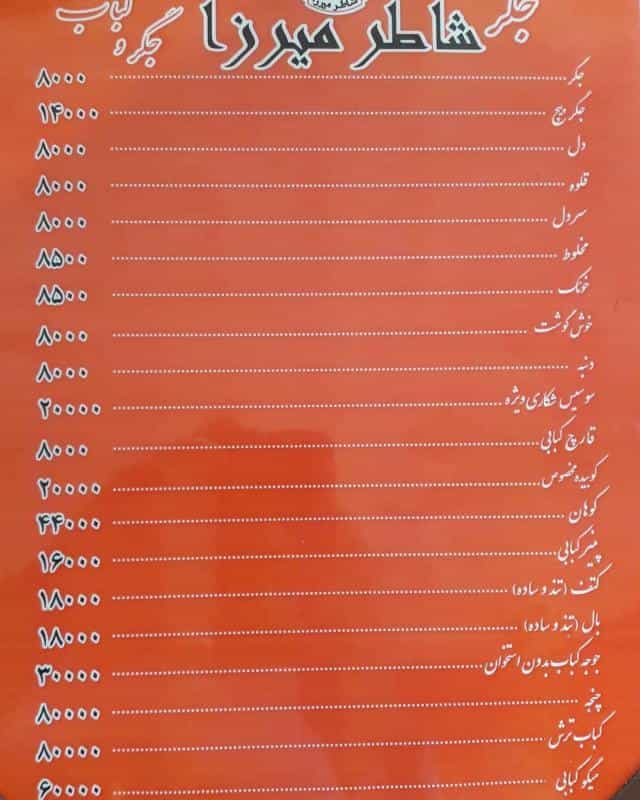 جگر شاطر میرزا کباب
شاطر میرزا
جگر و
جگر ۸۰۰۰
جگر پیچ ۱۴۰۰۰
دل ۸۰۰۰
قلوه ۸۰۰۰
سردل ۸۰۰۰
مخلوط ۸۵۰۰
خونک ۸۵۰۰
خوش گوشت ۸۰۰۰
دنبه ۸۰۰۰
سوسیس شکاری ویژه ۲۰۰۰۰
قارچ کبابی ۸۰۰۰
کوبیده مخصوص ۲۰۰۰۰
کوهان ۴۴۰۰۰
پنیر کبابی ۱۶۰۰۰
کتف (تند و ساده) ۱۸۰۰۰
بال (تند و ساده) ۱۸۰۰۰
جوجه کباب بدون استخوان ۳۰۰۰۰
چنجه ۸۰۰۰۰
کباب ترش ۸۰۰۰۰
میگو کبابی ۶۰۰۰۰